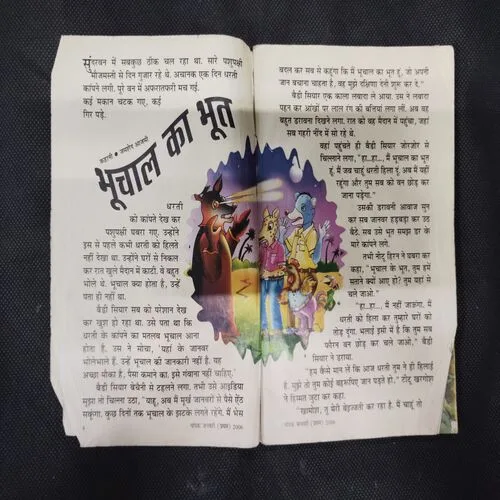 सुंदरवन में सबकुछ ठीक चल रहा था. सारे पशुपक्षी
मौजमस्ती से दिन गुजार रहे थे. अचानक एक दिन धरती
कांपने लगी. पूरे वन में अफरातफरी मच गई.
कई मकान चटक गए, कई
गिर पड़े.
कहानी •
भूचाल का भूत
धरती
को कांपते देख कर
पशुपक्षी घबरा गए. उन्होंने
इस से पहले कभी धरती को हिलते
नहीं देखा था. उन्होंने घरों से निकल
कर रात खुले मैदान में काटी. वे बहुत
भोले थे. भूचाल क्या होता है, उन्हें
पता ही नहीं था.
बैंडी सियार सब को परेशान देख
कर खुश हो रहा था. उसे पता था कि
धरती के कांपने का मतलब भूचाल आना
होता है. उस ने सोचा, 'यहां के जानवर
भोलेभाले हैं. उन्हें भूचाल की जानकारी नहीं है. यह
अच्छा मौका है, पैसा कमाने का. इसे गंवाना नहीं चाहिए.'
बैंडी सियार बेचैनी से टहलने लगा. तभी उसे आइडिया
सूझा तो चिल्ला उठा, "याहू, अब मैं मूर्ख जानवरों से पैसे ऐंठ
सकूंगा. कुछ दिनों तक भूचाल के झटके लगते रहेंगे. मैं भेस
बदल कर सब से कहूंगा कि मैं भूचाल का भूत हूं, जो अपनी
जान बचाना चाहता है, वह मुझे दक्षिणा देनी शुरू कर दे."
बैंडी सियार एक काला लबादा ले आया. उस ने लबादा
पहन कर आंखों पर लाल रंग की बत्तियां लगा लीं. अब वह
बहुत डरावना दिखने लगा. रात को वह मैदान में पहुंचा, जहां
सब गहरी नींद में सो रहे थे.
वहां पहुंचते ही बैंडी सियार जोरजोर से
चिल्लाने लगा, "हा...हा..., मैं भूचाल का भूत
हूं. मैं जब चाहूं धरती हिला दूं. अब मैं यहीं
रहूंगा और तुम सब को वन छोड़ कर
जाना पड़ेगा."
उसकी डरावनी आवाज सुन
कर सब जानवर हड़बड़ा कर उठ
बैठे. सब उसे भूत समझ डर के
मारे कांपने लगे.
तभी नीटू हिरन ने घबरा कर
कहा, "भूचाल के भूत, तुम हमें
सताने क्यों आए हो? तुम यहां से
चले जाओ."
"हा...हा..., मैं नहीं जाऊंगा. मैं
धरती को हिला कर तुम्हारे घरों को
तोड़ दूंगा. भलाई इसी में है कि तुम सब
फौरन वन छोड़ कर चले जाओ," बैंडी
सियार ने डराया.
"हम कैसे मान लें कि आज धरती तुम ने ही हिलाई
है. मुझे तो तुम कोई बहुरूपिए जान पड़ते हो." टीटू खरगोश
ने हिम्मत जुटा कर कहा.
"खामोश, तू मेरी बेइज्जती कर रहा है. मैं चाहूं तो
चंपक जनवरी (प्रथम) 2006
चंपक जनवरी (प्रथम) 2006